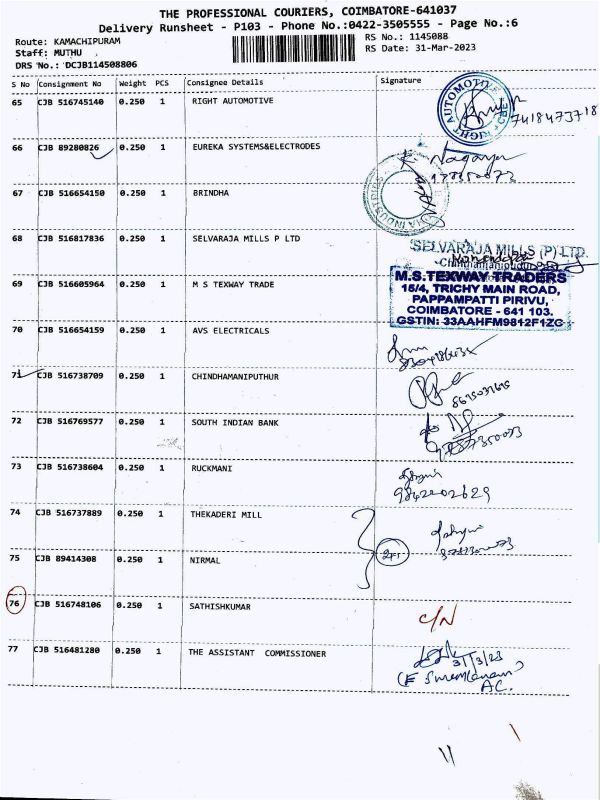 THE PROFESSIONAL COURIERS, COIMBATORE-641037
Delivery Runsheet - P103 - Phone No.:0422-3505555 - Page No.:6
Route: KAMACHIPURAM
Staff: MUTHU
DRS No.: DCJB114508806
RS No.: 1145088
RS Date: 31-Mar-2023
S No Consignment No Weight PCS Consignee Details Signature
65 CJB 516745140 0.250 1 RIGHT AUTOMOTIVE
RIGHT AUTOMOTIVE
7418473718
66 CJB 89280826 0.250 1 EUREKA SYSTEMS&ELECTRODES
67 CJB 516654150 0.250 1 BRINDHA
68 CJB 516817836 0.250 1 SELVARAJA MILLS P LTD
SELVARAJA MILLS (P) LTD.
69 CJB 516605964 0.250 1 M S TEXWAY TRADE
M.S.TEXWAY TRADERS
15/4, TRICHY MAIN ROAD,
PAPPAMPATTI PIRIVU,
COIMBATORE - 641 103.
GSTIN: 33AAHFM9812F1ZG
70 CJB 516654159 0.250 1 AVS ELECTRICALS
71 CJB 516738709 0.250 1 CHINDHAMANIPUTHUR
72 CJB 516769577 0.250 1 SOUTH INDIAN BANK
73 CJB 516738604 0.250 1 RUCKMANI
9842202629
74 CJB 516737889 0.250 1 THEKADERI MILL
75 CJB 89414308 0.250 1 NIRMAL
76 CJB 516748106 0.250 1 SATHISHKUMAR
C/N
77 CJB 516481280 0.250 1 THE ASSISTANT COMMISSIONER
31/3/23
AC.